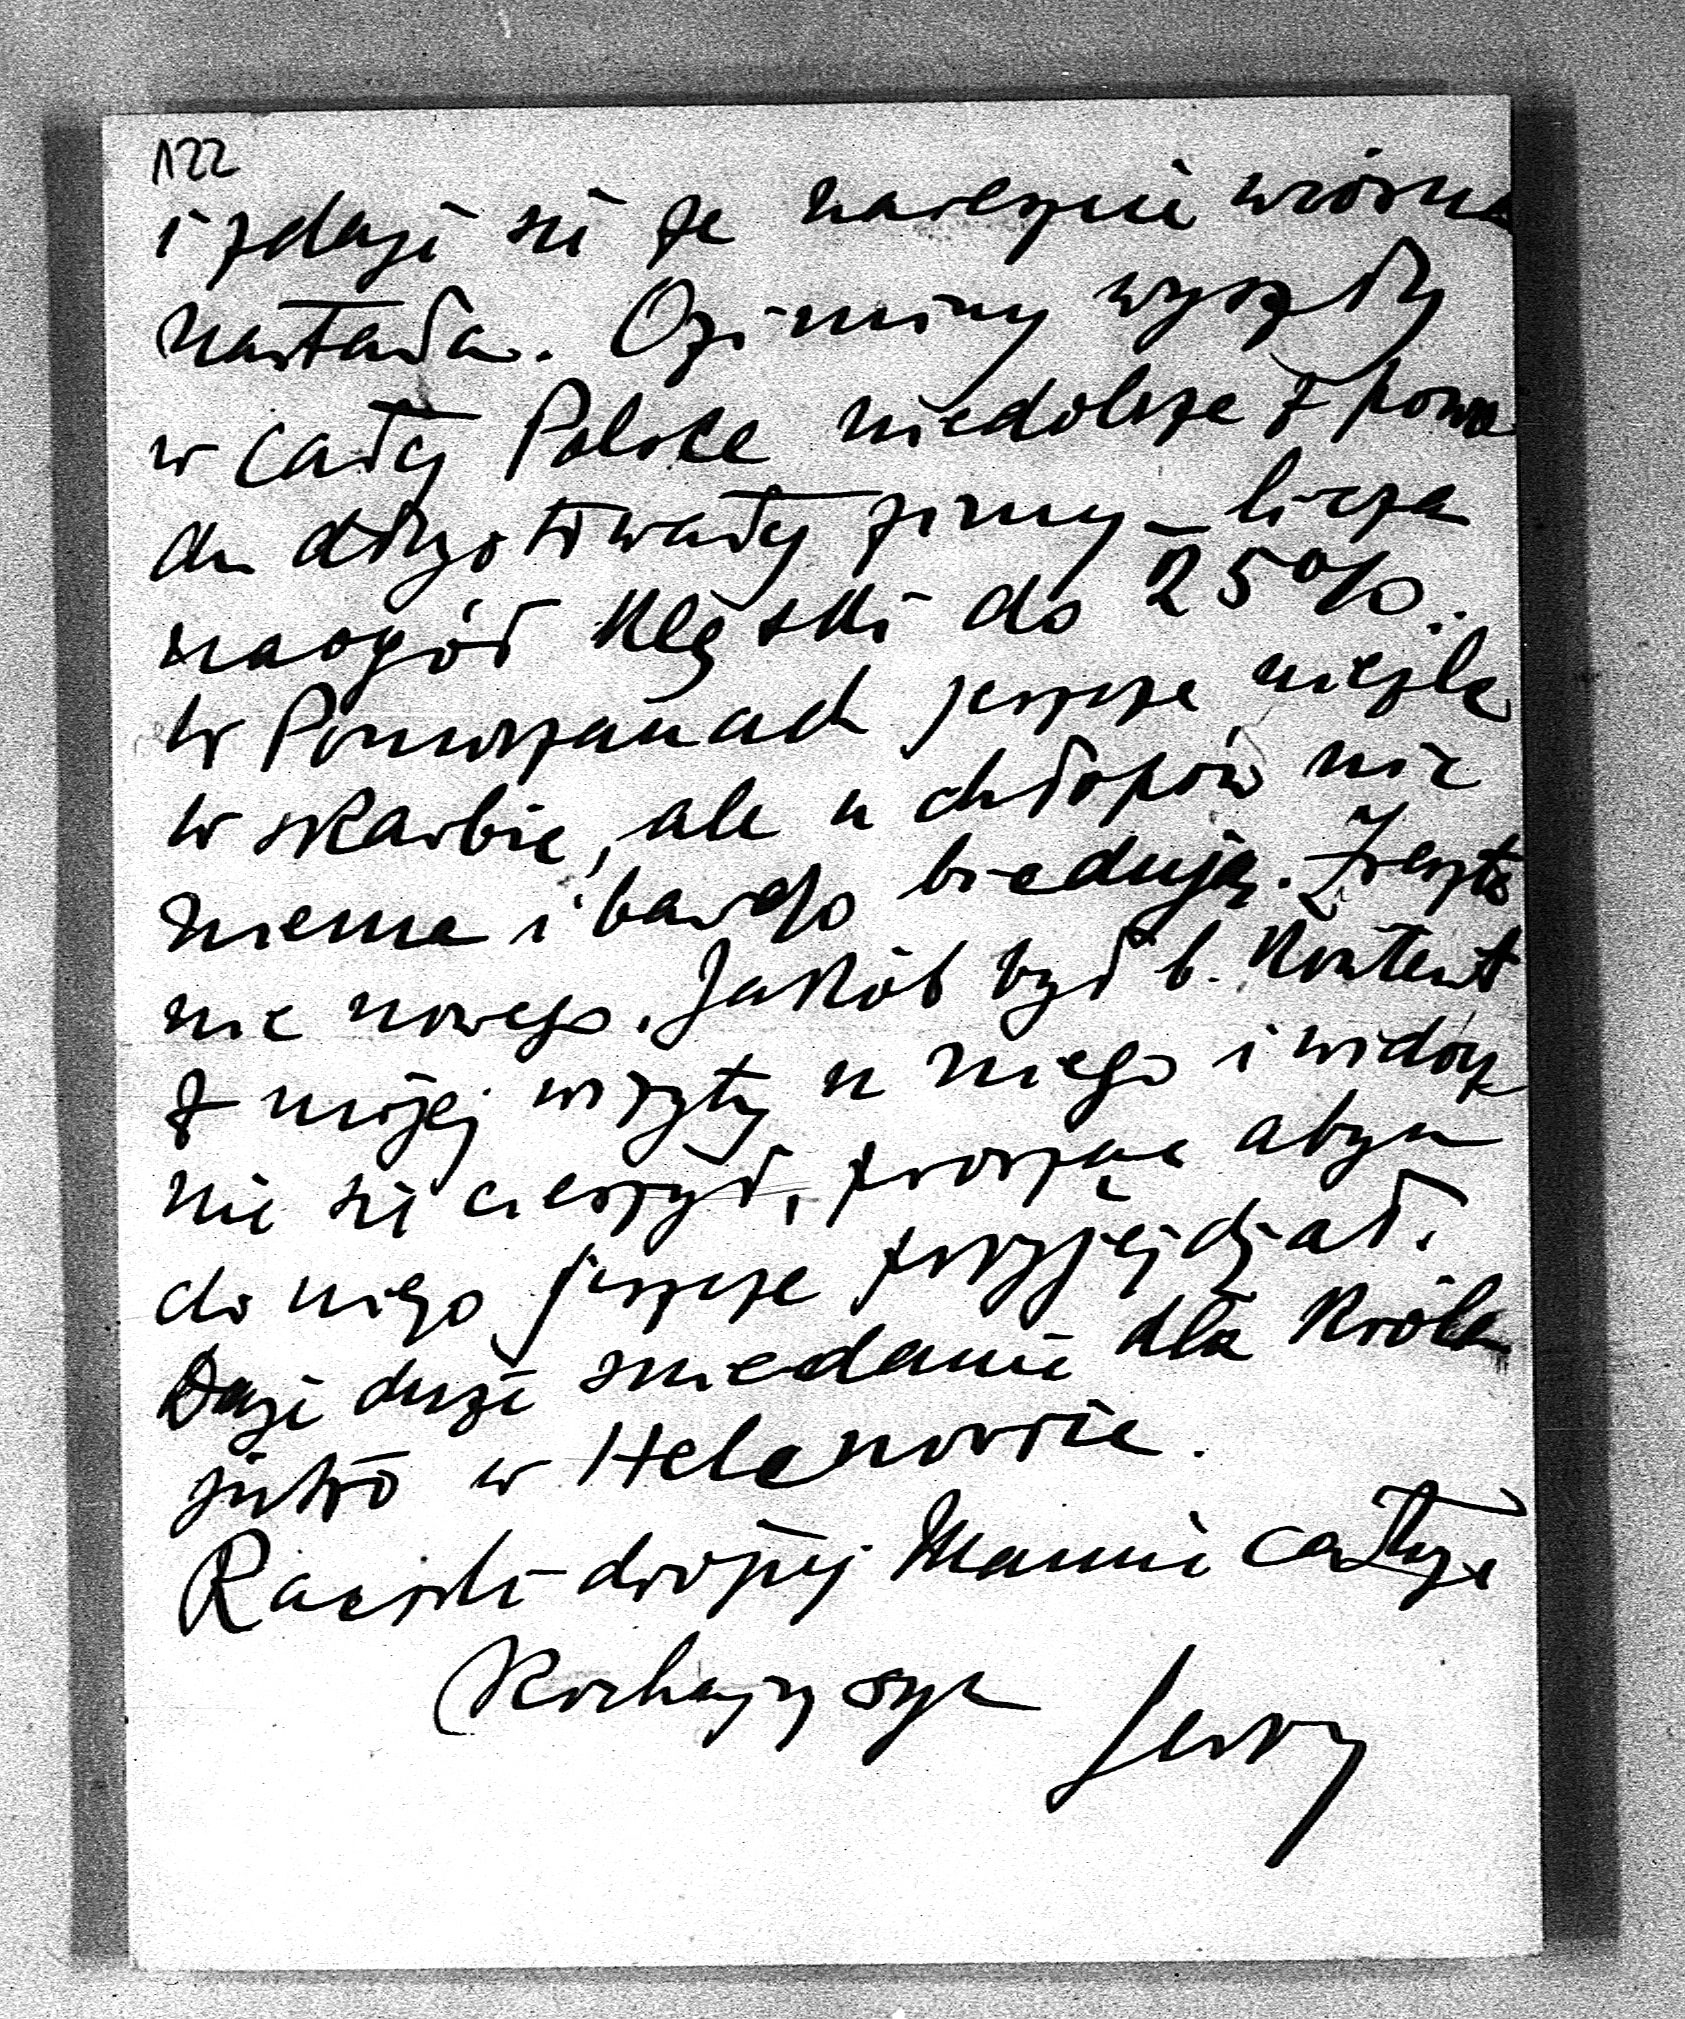 122
i zdaje się że nareszcie wiosna
nastała. Oziminy wyszły
w całej Polsce niedobrze z powo
du długotrwałej zimy – liczą
naogół klęski do 25%.
W Pomorzanach jeszcze nieźle
w skarbie, ale u chłopów nic
niema i bardzo biedują. Zresztą
nic nowego. Jakób był b. kontent
z mojej wizyty u niego i widocz
nie się cieszył, prosząc abym
do niego jeszcze przyjeżdżał.
Daje duże śniadanie dla Króla
jutro w Helenowie.
Rączki drogiej Mamie całuję
Kochający syn Jerzy